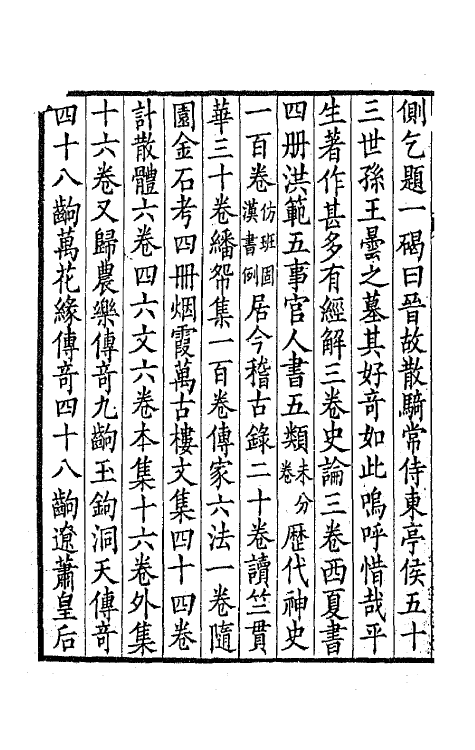 側乞題一碣曰晉故散騎常侍東亭侯五十
三世孫王曇之墓其好奇如此嗚呼惜哉平
生著作甚多有經解三卷史論三卷西夏書
四册洪範五事官人書五類未分卷歷代神史
一百卷仿班固漢書例居今稽古錄二十卷讀竺貫
華三十卷繙帤集一百卷傳家六法一卷隨
園金石考四册烟霞萬古樓文集四十四卷
計散體六卷四六文六卷本集十六卷外集
十六卷又歸農樂傳奇九齣玉鉤洞天傳奇
四十八齣萬花緣傳奇四十八齣遼蕭皇后